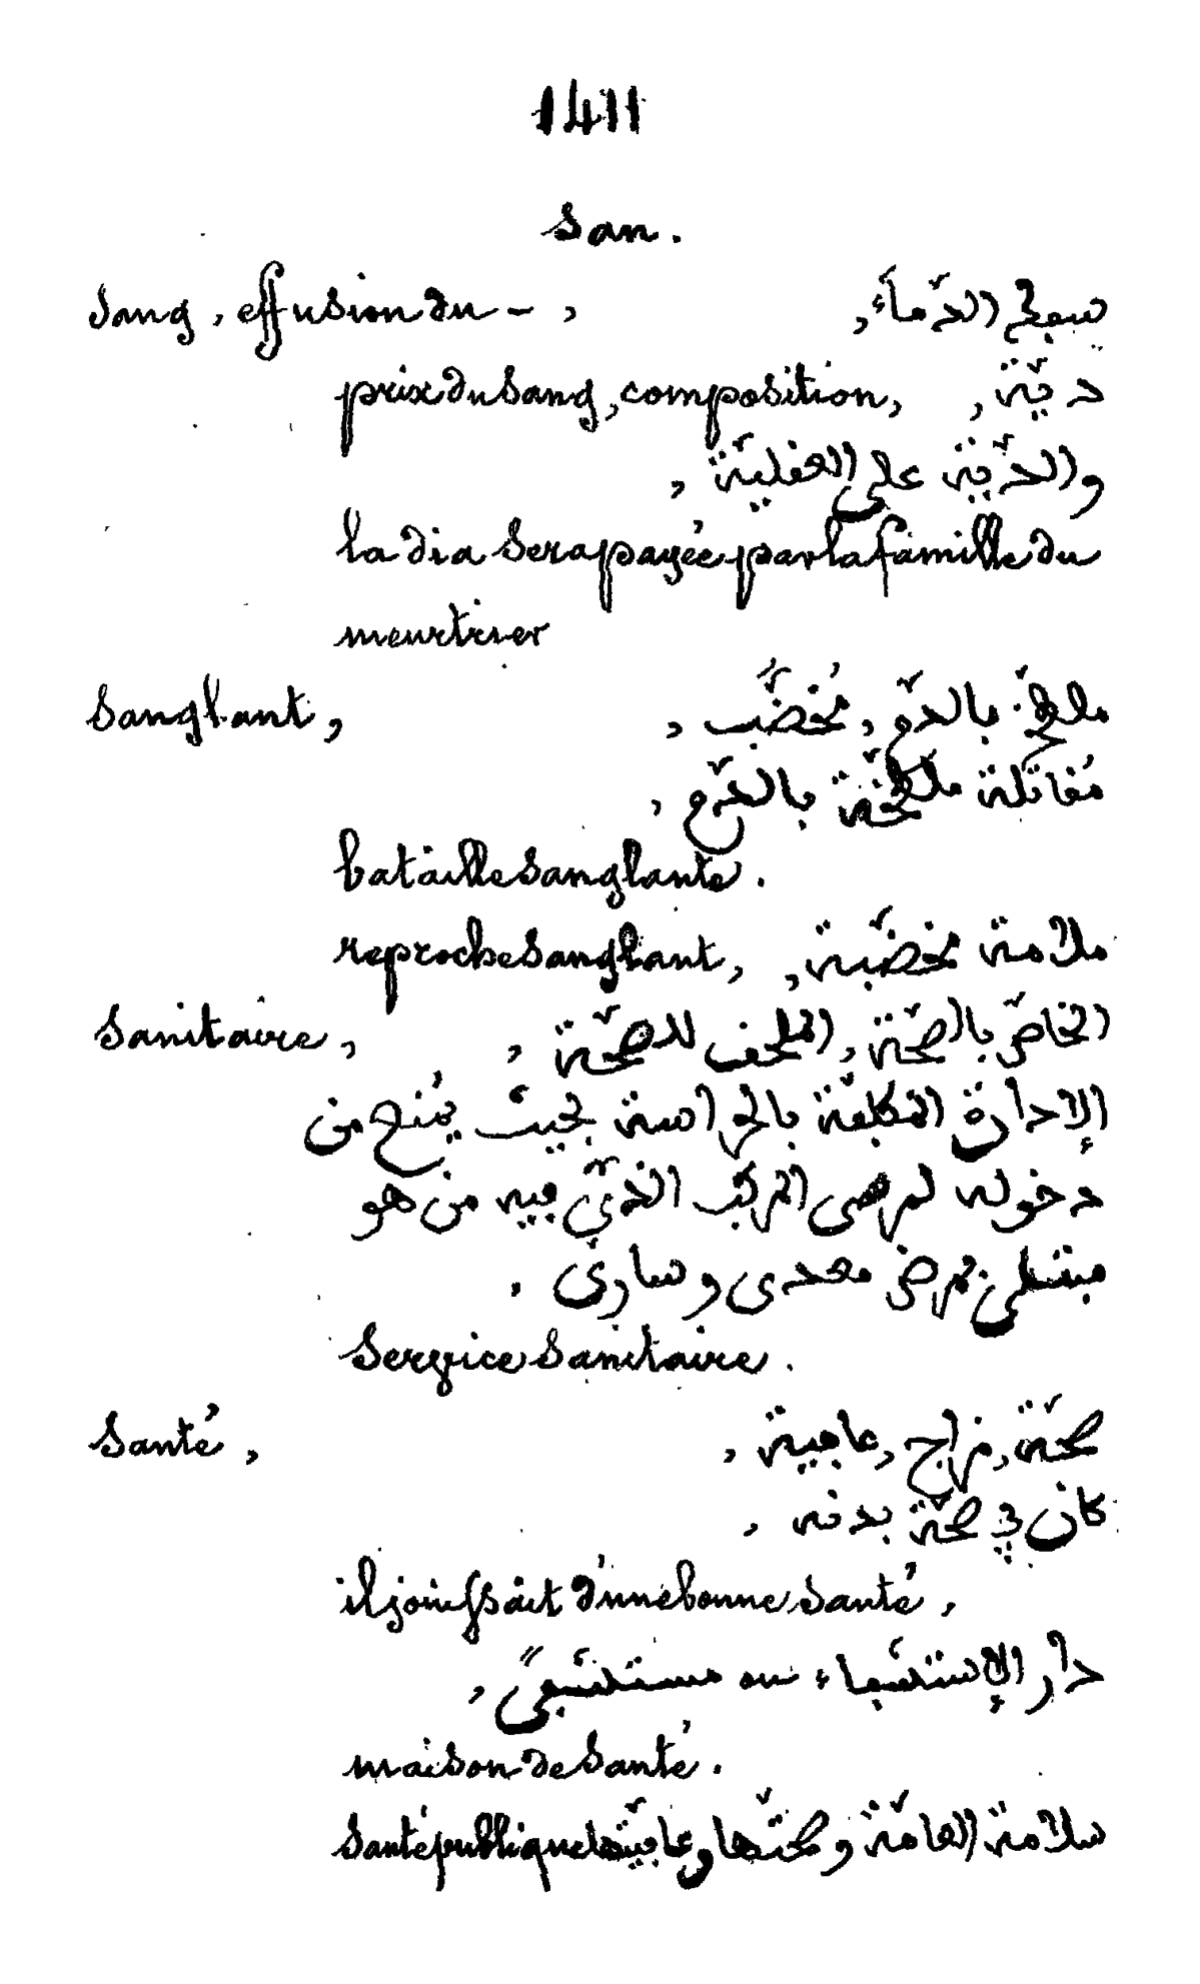 1411
San.
Sang, effusion du – , سفح الدّماء,
prix du sang, composition, ديّة,
والديّة على العقليّة,
la dia sera payée par la famille du
meurtrier
Sanglant, ملطّخ بالدّم, مُخضّب,
مُقاتلة ملطّخة بالدّم,
bataille sanglante.
reproche sanglant, ملامة مخضّبة,
Sanitaire, الخاصّ بالصّحّة, للصّحّة,
الإدارة المكلّفة بالحراسة بحيث يمنح من
دخوله لمرسى المركب الذّي فيه من هو
مبتلى بمرض معدى وسارى,
Service sanitaire.
Santé, صحّة, مزاج, عافية,
كان في صحّة بدنه,
il jouissait d'une bonne santé,
دار الإستشفاء ou مستشفىً,
maison de santé.
Santé publique سلامة العامّة وصحّتها وعافيتها